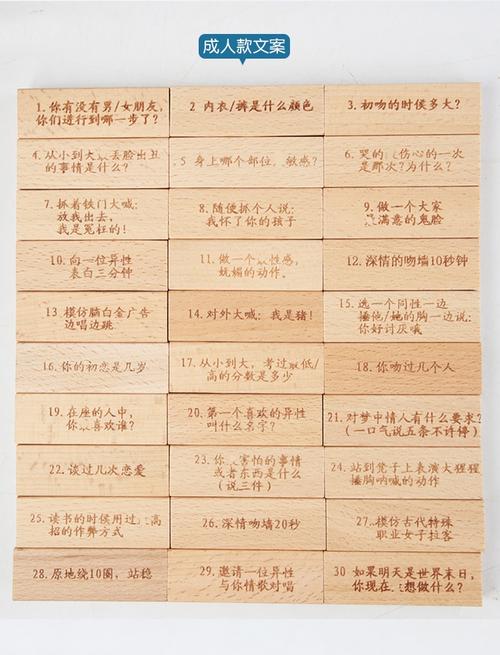 成人款文案
1. 你有没有男/女朋友,
你们进行到哪一步了?
2 内衣/裤是什么颜色
3. 初吻的时候多大?
4. 从小到大丢脸出丑
的事情是什么?
5 身上哪个部位,敏感?
6. 哭的伤心的一次
是那次?为什么?
7. 抓着铁门大喊:
放我出去,
我是冤枉的!
8. 随便抓个人说:
我怀了你的孩子
9. 做一个大家
满意的鬼脸
10. 向一位异性
表白三分钟
11. 做一个性感,
妩媚的动作。
12. 深情的吻墙10秒钟
13 模仿脑白金广告
边唱边跳
14. 对外大喊:我是猪!
15. 选一个同性一边
捶他/她的胸一边说:
你好讨厌哦
16. 你的初恋是几岁
17. 从小到大,考过低/
高的分数是多少
18. 你吻过几个人
19. 在座的人中,
你喜欢谁?
20. 第一个喜欢的异性
叫什么名字?
21. 对梦中情人有什么要求?
(一口气说五条不许停)
22. 谈过几次恋爱
23. 你害怕的事情
或者东西是什么
(说三件)
24. 站到凳子上表演大猩猩
捶胸呐喊的动作
25. 读书的时候用过高
招的作弊方式
26. 深情吻墙20秒
27. 模仿古代特殊
职业女子拉客
28. 原地绕10圈,站稳
29. 邀请一位异性
与你情歌对唱
30 如果明天是世界末日,
你现在想做什么?